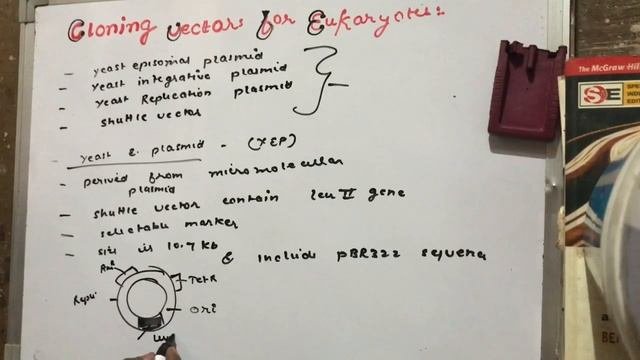 Cloning Vectors for Eukaryotes:
- yeast episomal plasmid
- Yeast integrative plasmid
- Yeast Replication plasmid
- shuttle vector
yeast E. plasmid - (YEP)
- Derived from micromolecular
plasmid
- shuttle vector contain leu II gene
- selectable marker
- size is 10.7 kb & include pBR322 sequence
AmR
TetR
ori
The McGraw Hill
SPE
IND
EDIT